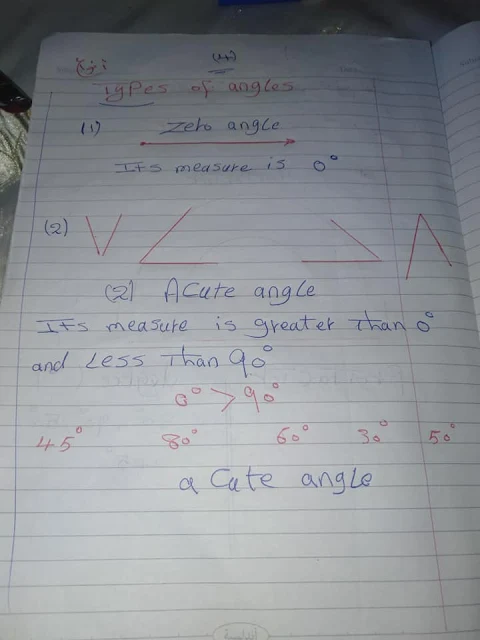 Types of angles
(1) Zero angle
Its measure is 0°
(2)
(2) Acute angle
Its measure is greater than 0°
and Less Than 90°
0° > 90°
45° 80° 60° 30° 50°
acute angle